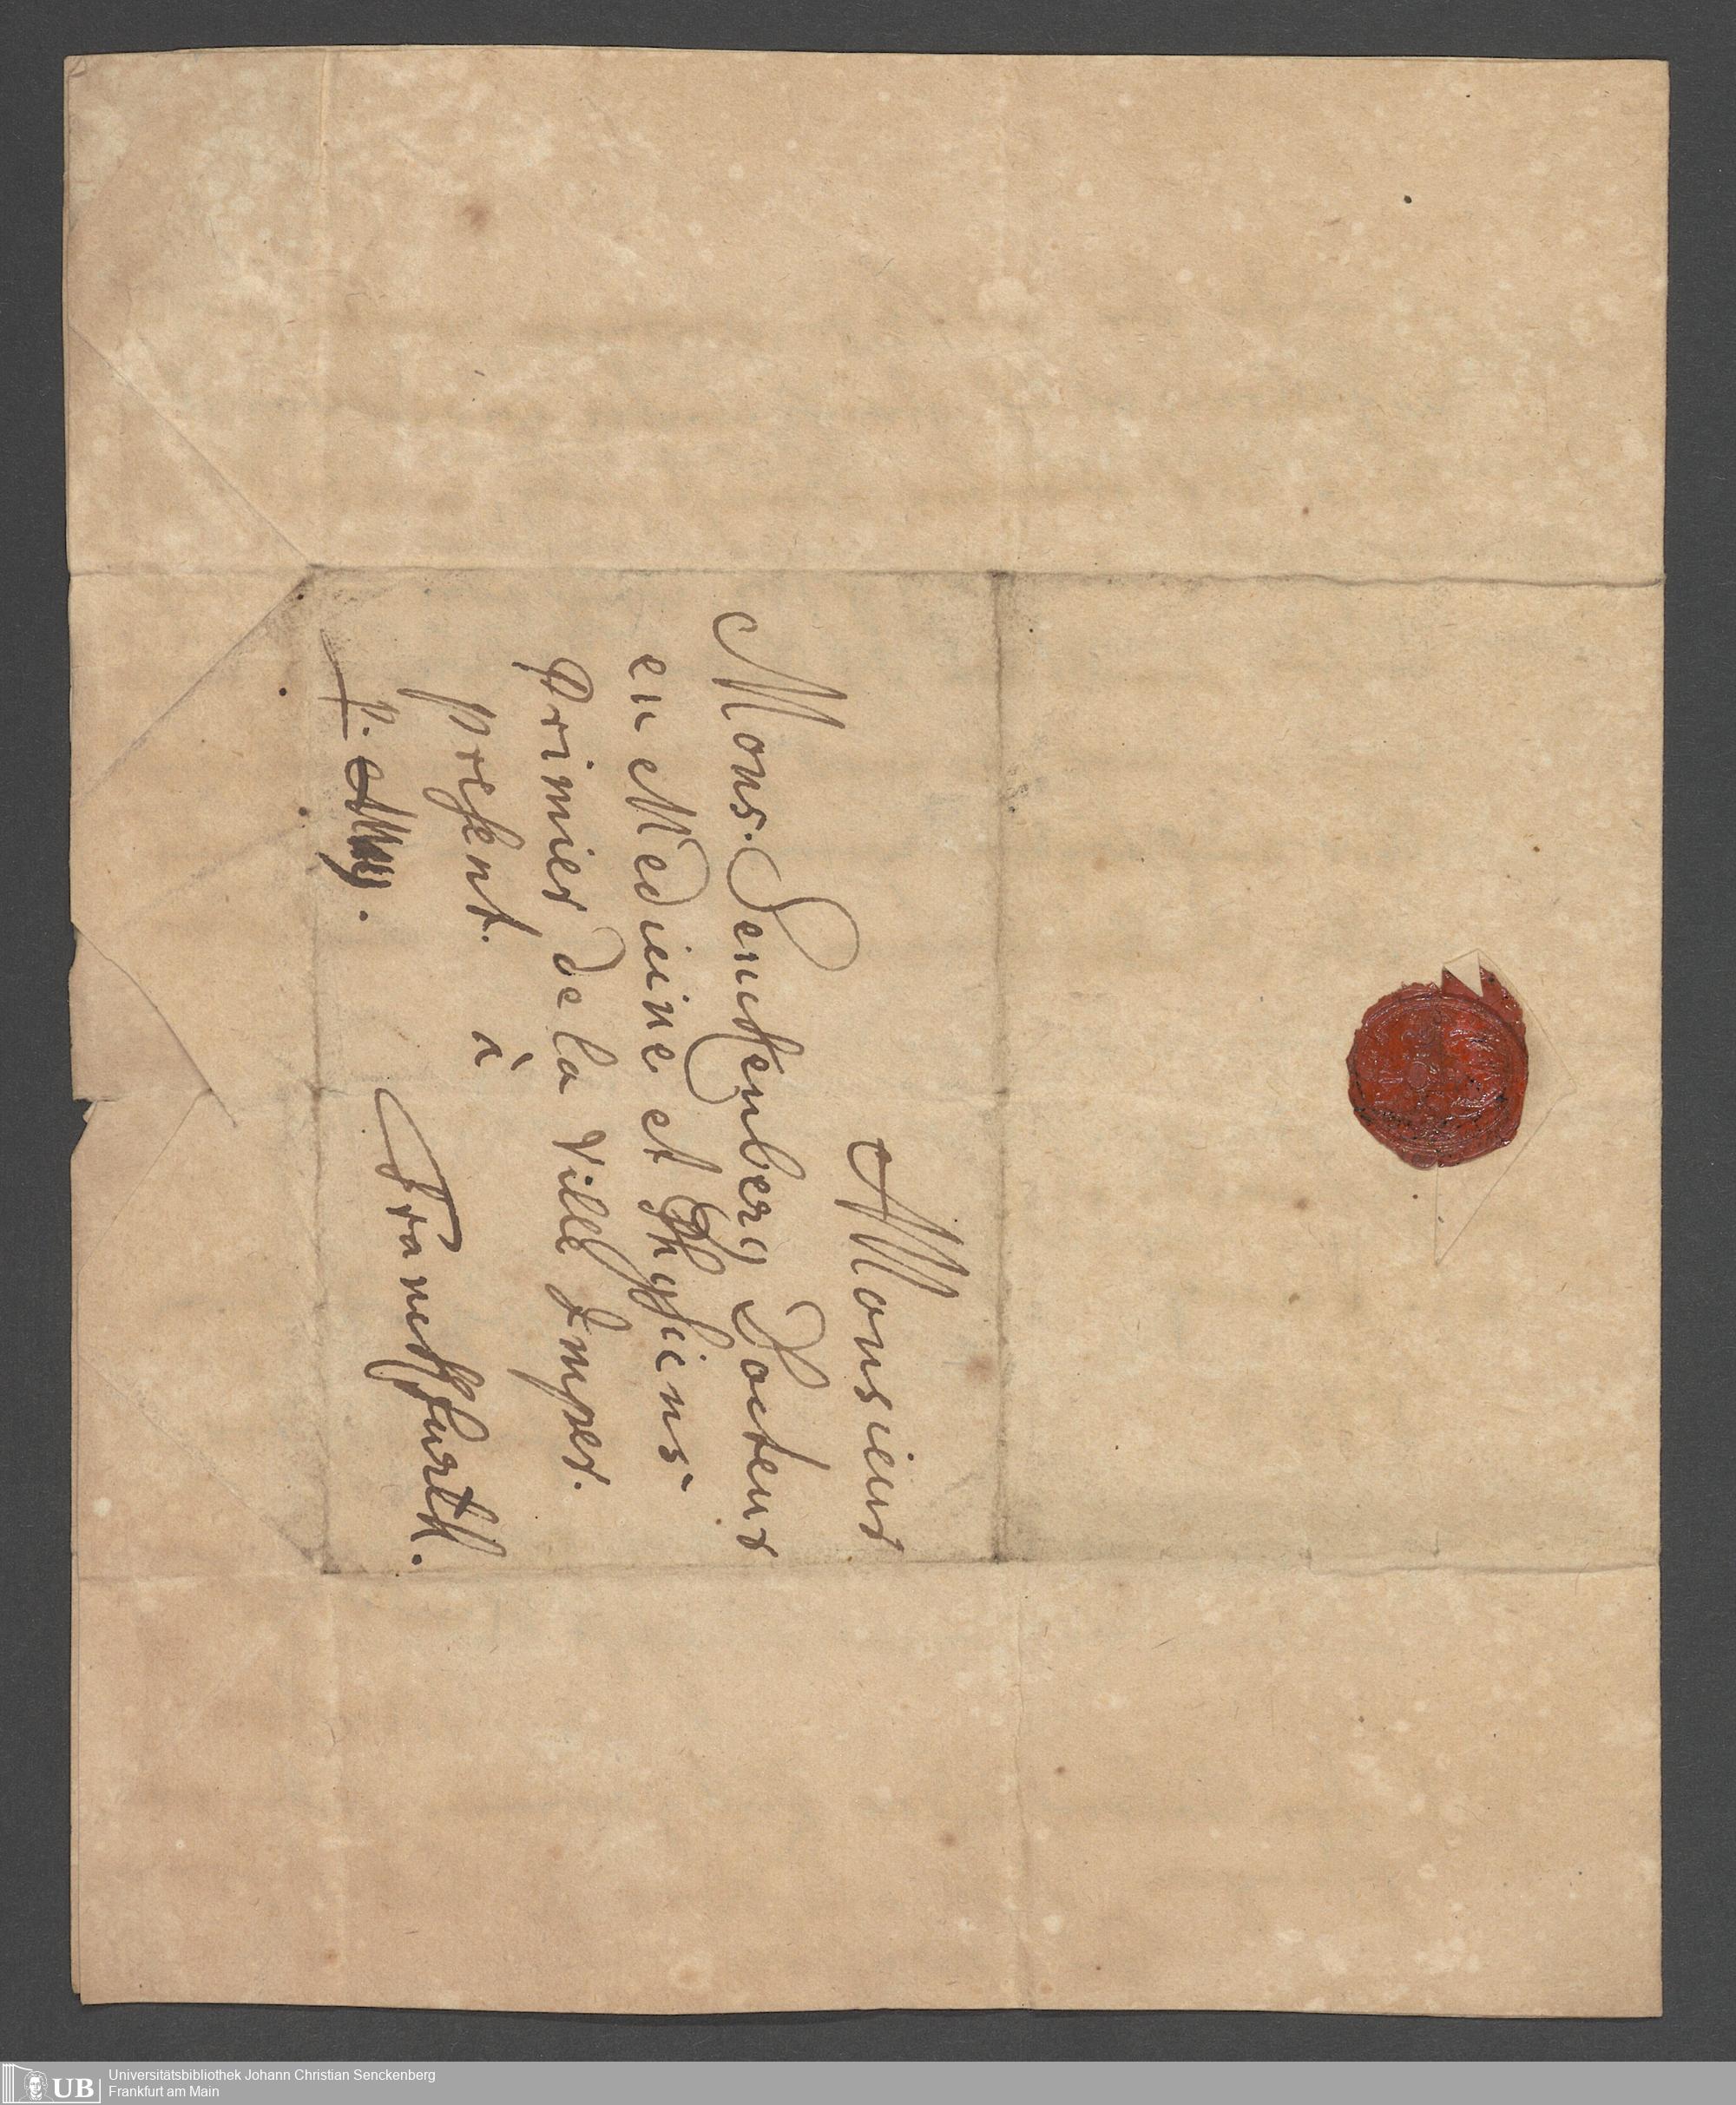 Monsieur
Mons. Senckenberg Docteur
en Medicine et Physiens
Primier de la Ville Imper.
present. à
Franckfurth.
p.
UB
Universitätsbibliothek Johann Christian Senckenberg
Frankfurt am Main